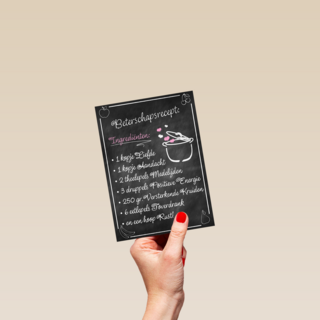 Beterschapsrecept
Ingrediënten:
• 1 kopje Liefde
• 1 kopje Aandacht
• 2 theelepels Medelijden
• 3 druppels Positieve Energie
• 250 gr. Versterkende Kruiden
• 6 eetlepels Toverdrank
• en een hoop Rust!